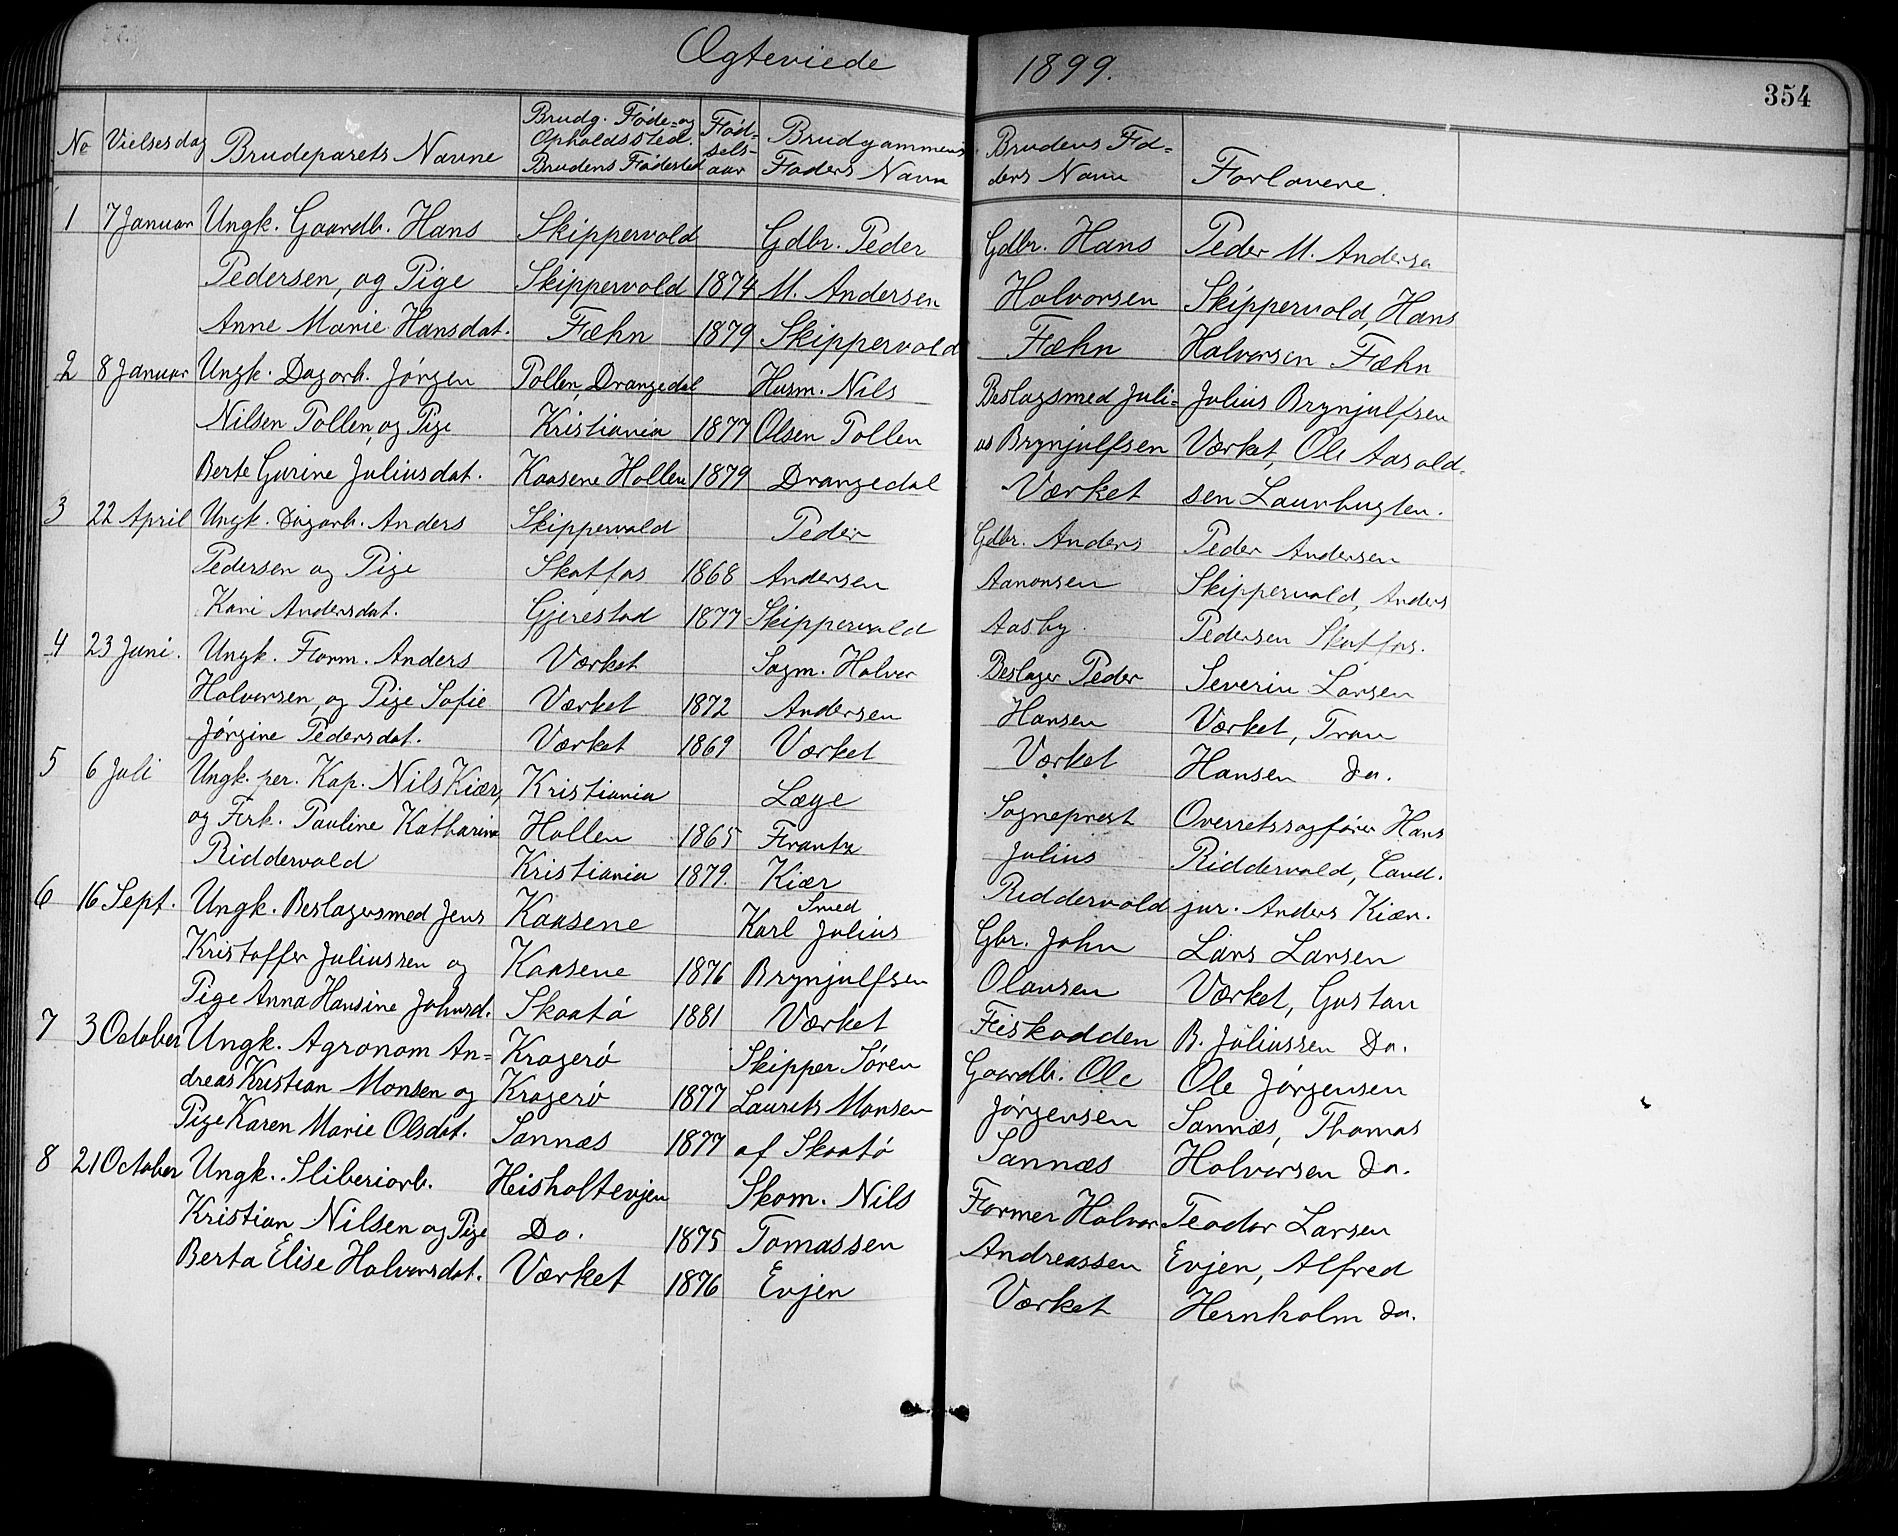 Ægteviede
1899.
354
No
Vielsesdag
Brudeparets Navne
Brudg. Føde- og
Opholdssted.
Brudens Fødested
Fød-
sels-
aar
Brudgammens
Faders Navn
Brudens Fa-
ders Navn
Forlovere.
1 7 Januar Ungk. Gaardb. Hans Skippervold Gdbr. Peder Gdbr. Hans Peder M. Andersen
Pedersen, og Pige Skippervold 1874 M. Andersen Halvorsen Skippervold, Hans
Anne Marie Hansdat. Fæhn 1879 Skippervold Fæhn Halvorsen Fæhn
2 8 Januar Ungk. Dagarb. Jørgen Tollen, Drangedal Husm. Nils Beslagsmed Juli- Julius Brynjulfsen
Nilsen Tollen, og Pige Kristiania 1877 Olsen Tollen us Brynjulfsen Værket, Ole Aasold-
Berte Gurine Juliusdat. Kaasene Hollen 1879 Drangedal Værket sen Laurbugten.
3 22 April Ungk. Dagarb. Anders Skippervold Peder Gdbr. Anders Peder Andersen
Pedersen og Pige Skotfos 1868 Andersen Aanonsen Skippervold, Anders
Kari Andersdat. Gjerestad 1877 Skippervold Aasby Pedersen Skotfos.
4 23 Juni. Ungk. Form. Anders Værket Sagm. Halvor Beslager Peder Severin Larsen
Halvorsen, og Pige Sofie Værket 1872 Andersen Hansen Værket, Tran
Jørgine Pedersdat. Værket 1869 Værket Værket Hansen Do.
5 6 Juli Ungk. per. Kap. Nils Kiær, Kristiania Læge Sogneprest Overretssagfører Hans
og Frk. Pauline Katharina Hollen 1865 Frantz Julius Riddervold, Cand.
Riddervold Kristiania 1879. Kiær Riddervold jur. Anders Kiær.
6 16 Sept. Ungk. Beslagersmed Jens Kaasene Smed Karl Julius Gbr. John Lars Larsen
Kristoffer Juliussen og Kaasene 1876 Brynjulfsen Olausen Værket, Gustav
Pige Anna Hansine Johnsd. Skaatø 1881 Værket Fiskodden B. Juliussen Do.
7 3 October Ungk. Agronom An- Kragerø Skipper Søren Gaardb. Ole Ole Jørgensen
dreas Kristian Monsen og Kragerø 1877 Laurets Monsen Jørgensen Sannæs, Thomas
Pige Karen Marie Olsdat. Sannæs 1877 af Skaatø Sannæs Halvorsen Do.
8 21 October Ungk. Sliberiarb. Heisholtevjen Skom. Nils Former Halvor Teodor Larsen
Kristian Nilsen og Pige Do. 1875 Tomassen Andreassen Evjen, Alfred
Berta Elise Halvorsdat. Værket 1876 Evjen Værket Hernholm Do.